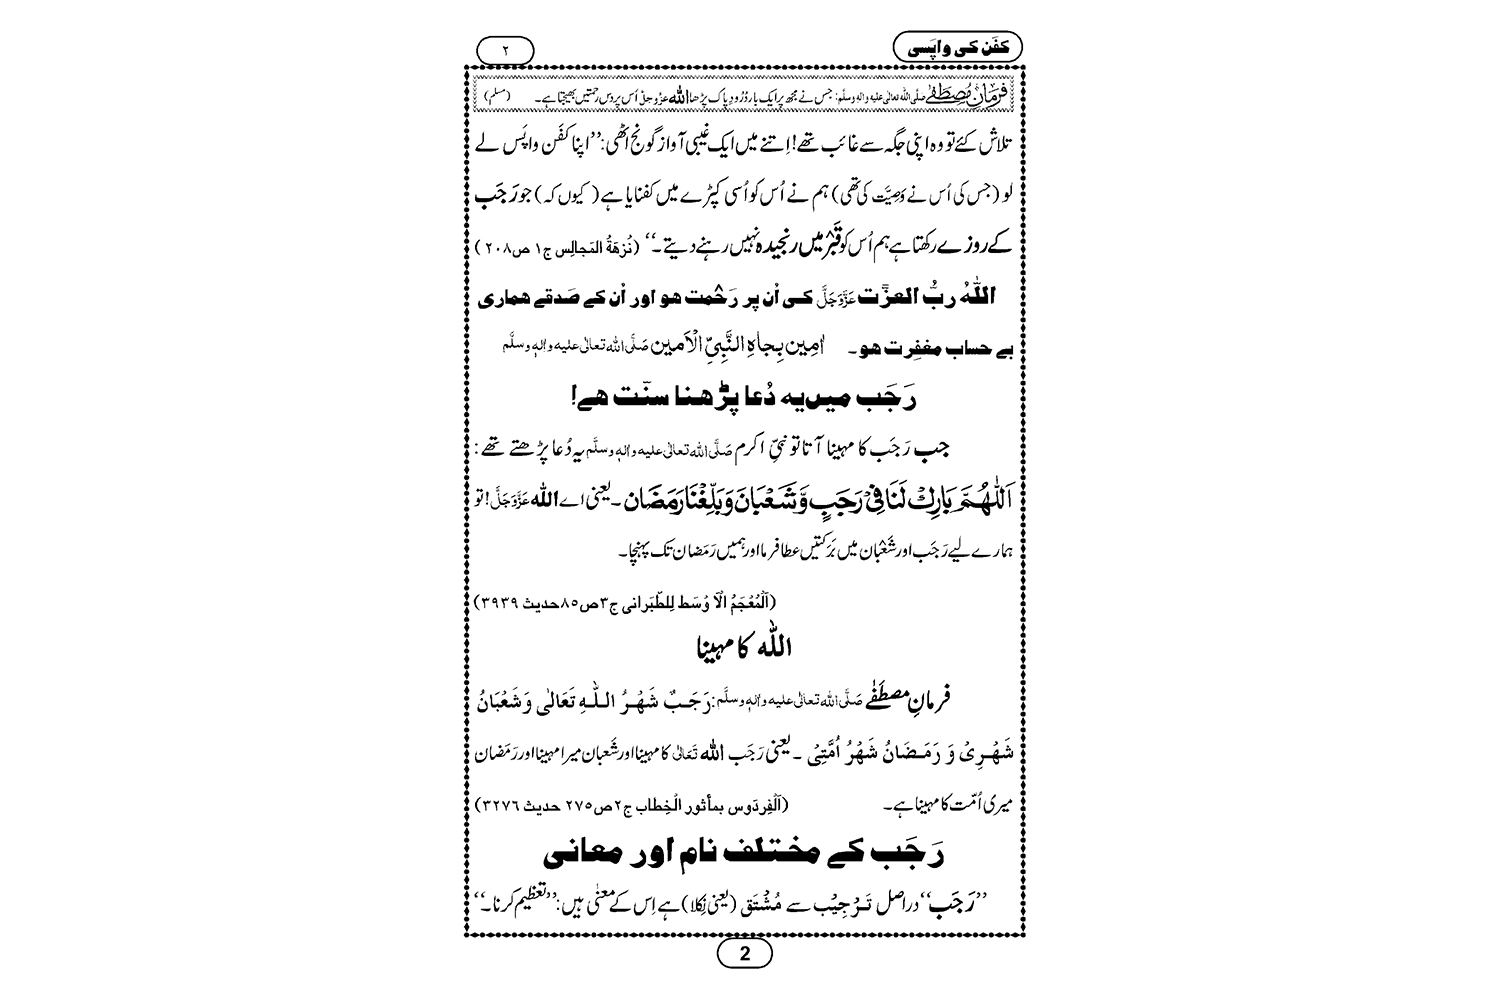 کفَن کی واپَسی
۲
فرمانِ مُصطَفٰے صلَّی اللہ تعالٰی علیہ واٰلہٖ وسلَّم: جس نے مجھ پر ایک بار دُرُودِ پاک پڑھا اللہ عزَّوجلَّ اُس پر دس رحمتیں بھیجتا ہے۔ (مسلم)
تلاش کئے تو وہ اپنی جگہ سے غائب تھے! اِتنے میں ایک غیبی آواز گونج اٹھی: ’’اپنا کفَن واپَس لے
لو (جس کی اُس نے وَصِیَّت کی تھی) ہم نے اُس کو اُسی کپڑے میں کفنایا ہے (کیوں کہ) جو رَجَب
کے روزے رکھتا ہے ہم اُس کو قَبْر میں رنجیدہ نہیں رہنے دیتے۔‘‘ (نُزہَۃُ المَجالِس ج۱ ص۲۰۸)
اللہُ ربُّ العزّت عَزَّوَجَلَّ کی اُن پر رَحْمت ھو اور اُن کے صَدقے ھماری
بے حساب مغفِرت ھو۔ اٰمِین بِجاہِ النَّبِیِّ الْاَمین صَلَّی اللہ تعالٰی علیہ واٰلہٖ وسلَّم
رَجَب میں یہ دُعا پڑھنا سنّت ھے!
جب رَجَب کا مہینا آتا تو نبیِّ اکرم صَلَّی اللہ تعالٰی علیہ واٰلہٖ وسلَّم یہ دُعا پڑھتے تھے:
اَللّٰھُمَّ بَارِكْ لَنَا فِیْ رَجَبٍ وَّشَعْبَانَ وَبَلِّغْنَا رَمَضَان ۔ یعنی اے اللہ عَزَّوَجَلَّ! تو
ہمارے لیے رَجَب اور شَعْبان میں بَرَکتیں عطا فرما اور ہمیں رَمَضان تک پہنچا۔
(اَلْمُعْجَمُ الْاَوْسَط لِلطَّبَرانی ج۳ ص۸۵ حدیث ۳۹۳۹)
اللہ کا مہینا
فرمانِ مصطَفٰے صَلَّی اللہ تعالٰی علیہ واٰلہٖ وسلَّم: رَجَبٌ شَھْرُ اللہِ تَعَالٰی وَشَعْبَانُ
شَھْرِیْ وَ رَمَضَانُ شَھْرُ اُمَّتِیْ ۔ یعنی رَجَب اللہ تَعَالٰی کا مہینا اور شَعبان میرا مہینا اور رَمَضان
میری اُمّت کا مہینا ہے۔ (اَلْفِردَوس بمأثور الْخِطاب ج۲ ص۲۷۵ حدیث ۳۲۷۶)
رَجَب کے مختلف نام اور معانی
’’رَجَب‘‘ دراصل تَرْجِیْب سے مُشْتَق (یعنی نِکلا) ہے اِس کے معنٰی ہیں: ’’تعظیم کرنا۔‘‘
2